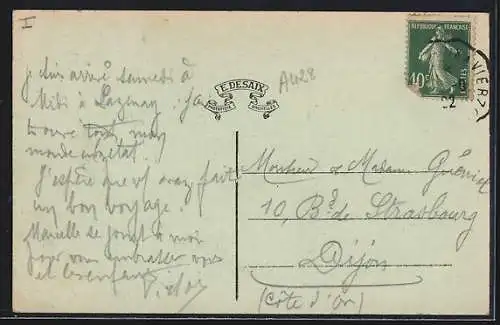 I
je suis arrivé samedi à
Midi à Lazenay. J'ai
trouvé tout mon
monde en état.
J'espère que vs avez fait
un bon voyage.
Marcelle se joint à moi
pour vous embrasser vous
et les enfants
Victor
E. DESAIX
A428
RÉPUBLIQUE FRANÇAISE
40c
POSTES
VIERZ
22
Monsieur & Madame
10, Bd de Strasbourg
Dijon
(Côte d'Or)